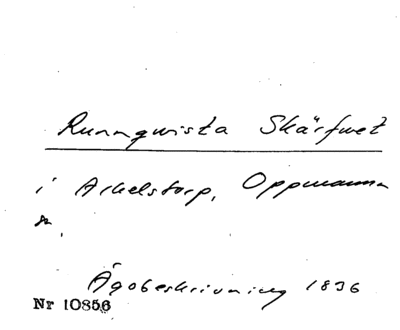 Runnqvista Skärfvet
i Arkelstorp, Oppmanna
sn.
Ägobeskrivning 1836
Nr 10856